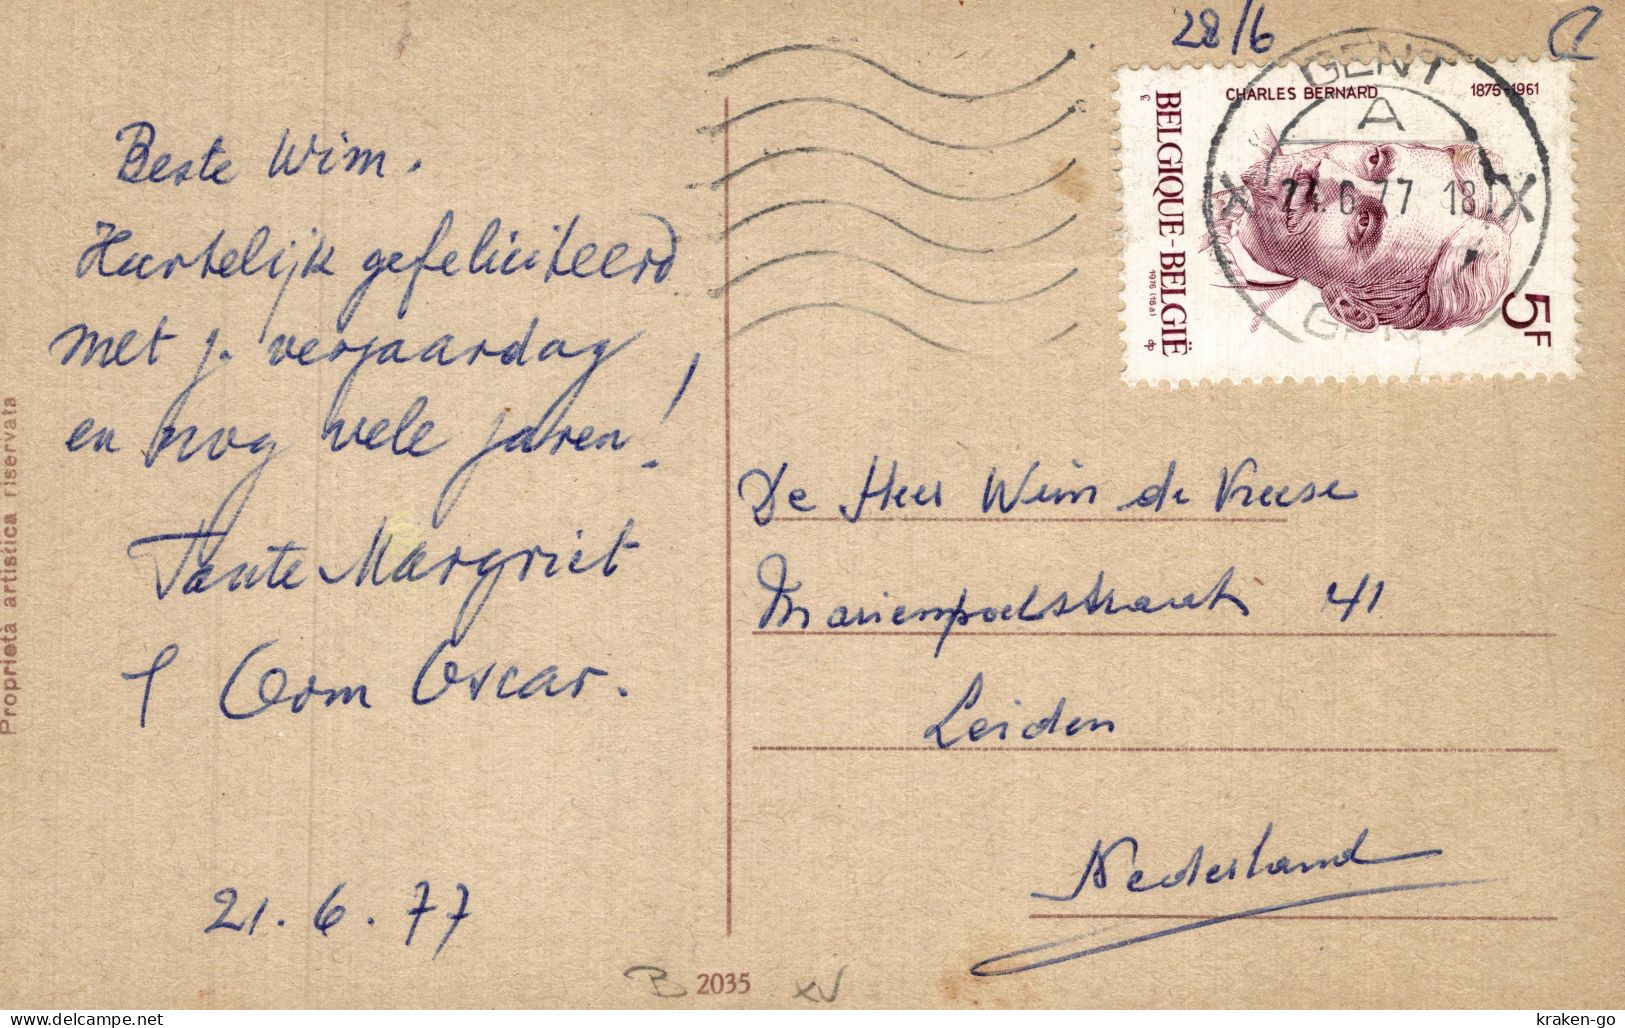 28/6
Beste Wim.
Hartelijk gefeliciteerd
met j. verjaardag
en nog vele jaren!
Tante Margriet
Oom Oscar.
21.6.77
Proprietà artistica riservata
B 2035 XV
CHARLES BERNARD 1875-1961
BELGIQUE-BELGIË
1976 (18a)
dp
3
5F
GENT
A
X 24.6.77 18 X
GENT
De Heer Wim de Vreese
Marienpoelstraat 41
Leiden
Nederland
kraken-go